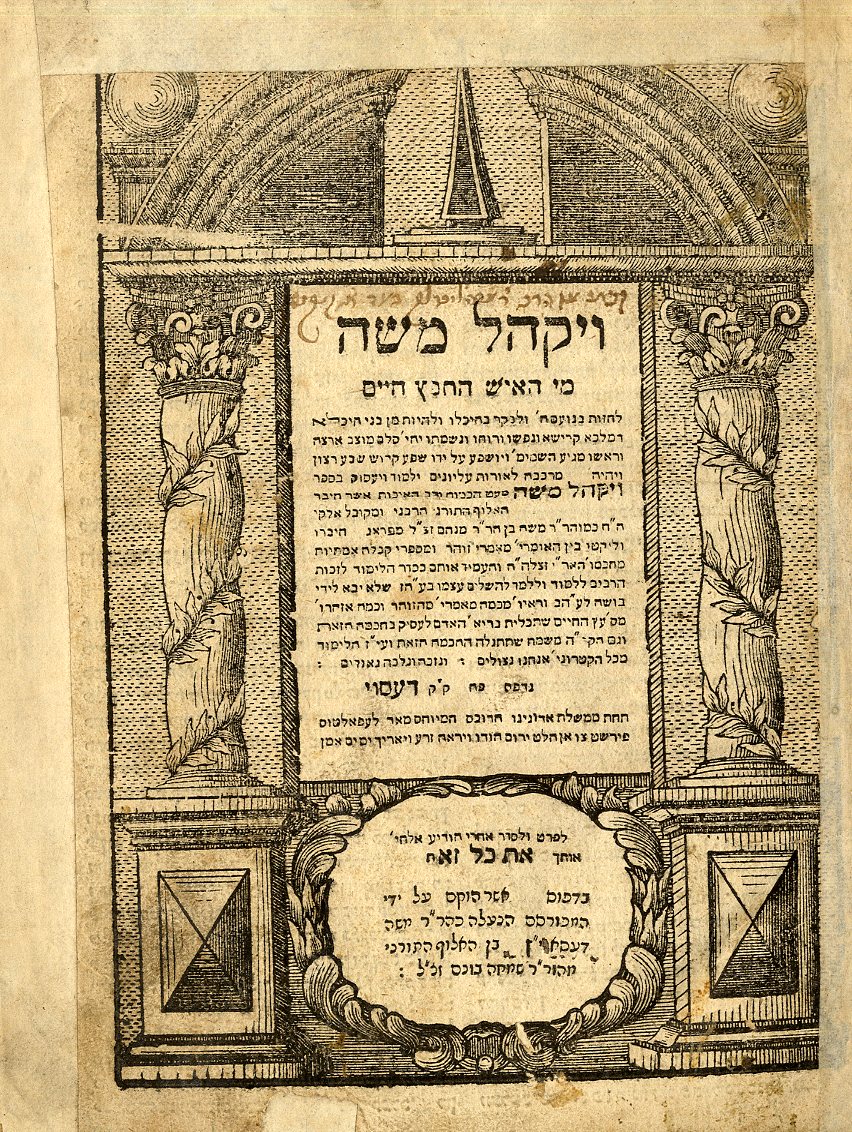 ויקהל משה
מי האיש החפץ חיים
לחזות בנועם ה' ולבקר בהיכלו ולהיות מן בני היכלא
דמלכא קדישא ונפשו ורוחו ונשמתו יהי' סלם מוצב ארצה
וראשו מגיע השמים' ויושפע על ידו שפע קדוש שבע רצון
ויהיה מרכבה לאורות עליונים ילמוד ויעסוק בספר
ויקהל משה מעט הכמות ורב האיכות אשר חיבר
האלוף התורני הרבני ומקובל אלקי
ה"ח כמוהר"ר משה בן הר"ר מנחם זצ"ל מפראג חיברו
וליקטו בין האומרי' מאמרי זוהר ומספרי קבלה אמתיות
מחכמו' האר"י זצלה"ה והעמיד אותם בסדר הלימוד לזכות
הרבים ללמוד וללמד להשלים עצמו בע"הז שלא יבא לידי
בושה לע"הב וראיו' מכמה מאמרי' מהזוהר וכמה אזהרו'
מס' עץ החיים שתכלית בריא' האדם לעסוק בחכמה הזאת
וגם הקי"ה משמח שתתגלה החכמה הזאת ועי"ז הלימוד
מכל הקטרוגי' אנחנו נצולים : ונזכה ונלכה גאולים :
נדפס פה ק"ק דעסוי
תחת ממשלת אדונינו הדוכס המיוחס מאד לעפאלטוס
פירשט צו אן הלט ירום הודו ויראה זרע ויאריך ימים אמן
לפרט ולסדר אחרי הודיע אלהי'
אותך את כל זאת
בדפוס אשר הוקם על ידי
המפורסם הנעלה כהר"ר משה
בן האלוף התורני
מהור"ר שמחה בונם זכ"ל :